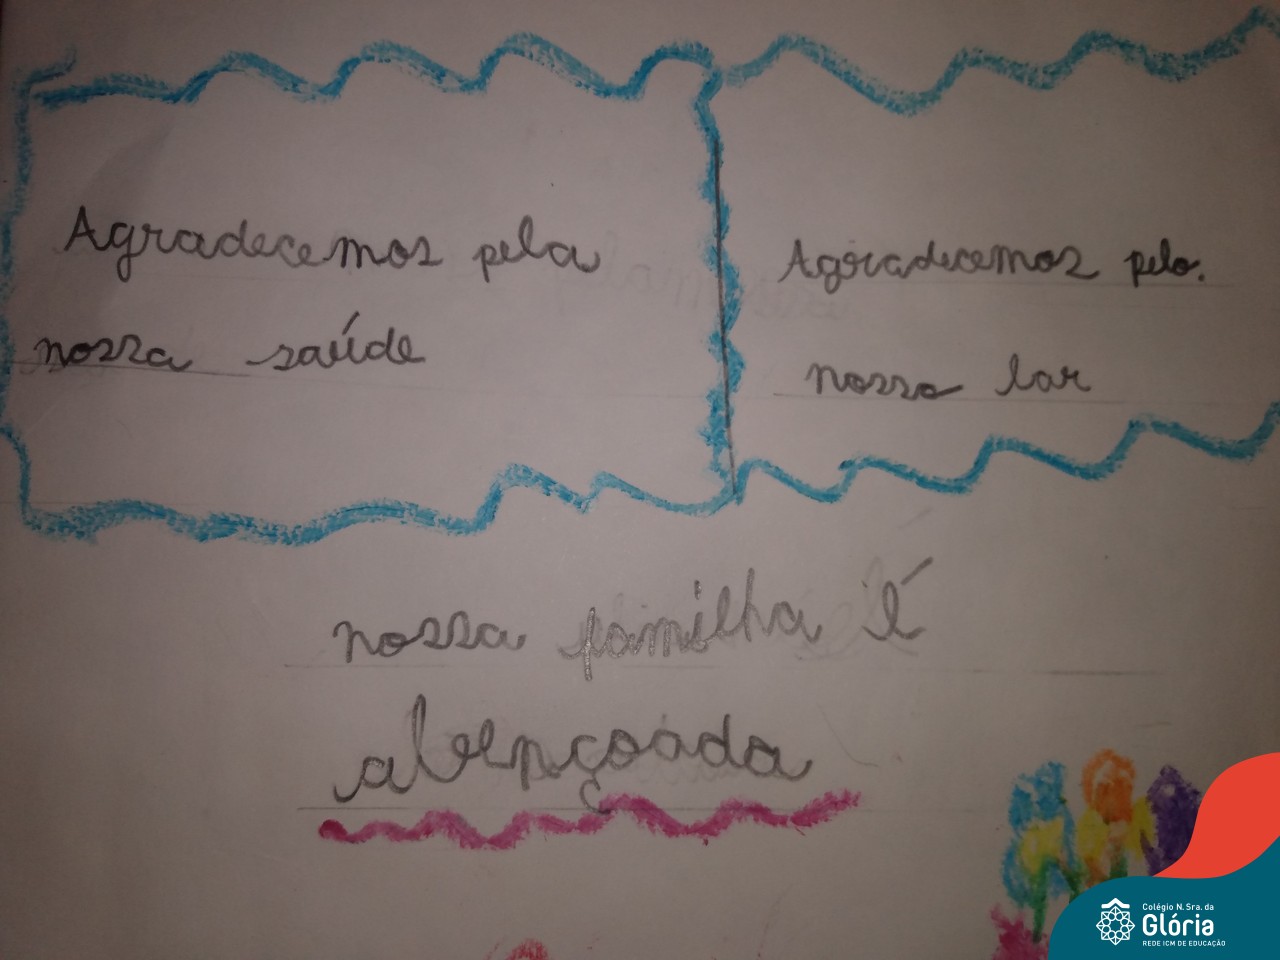 Agradecemos pela
nossa saúde
Agradecemos pelo.
nosso lar
nossa familha é
abençoada
Colégio N. Sra. da
Glória
REDE ICM DE EDUCAÇÃO